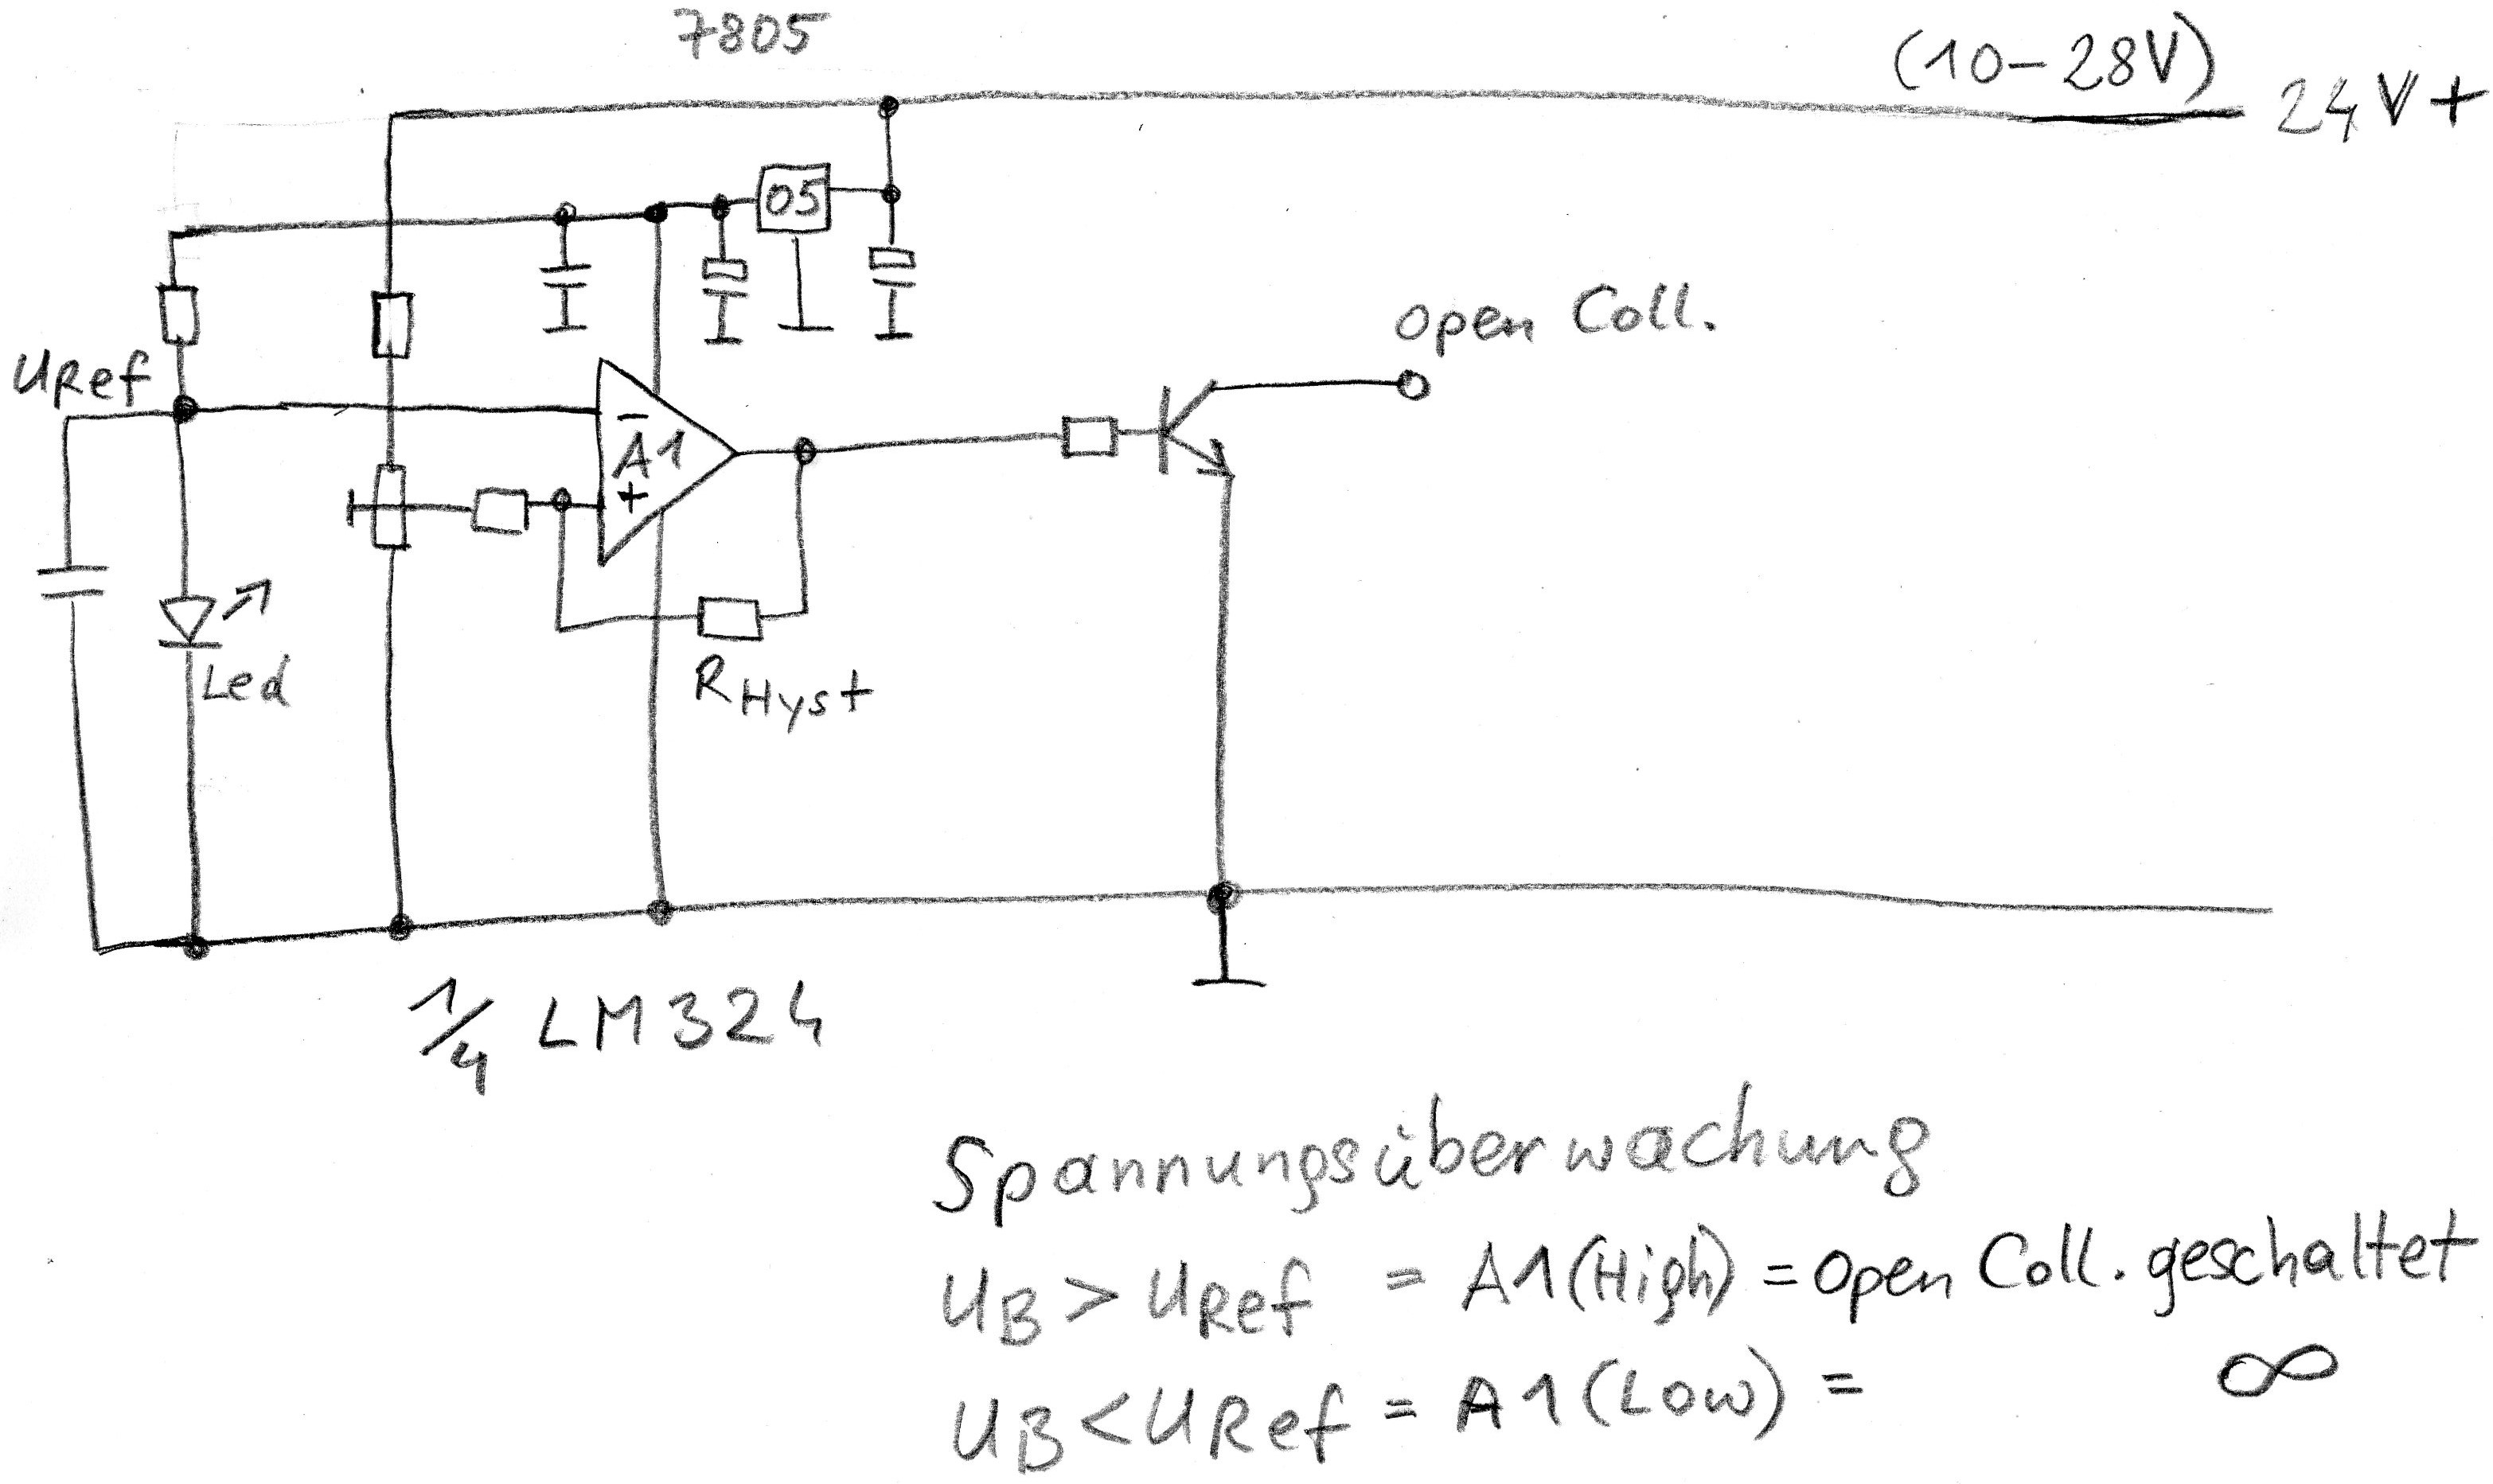 7805
(10-28V)
24V+
05
open Coll.
URef
-
A1
+
Led
RHyst
1/4 LM324
Spannungsüberwachung
UB > URef = A1(High) = open Coll. geschaltet
UB < URef = A1(Low) = ∞